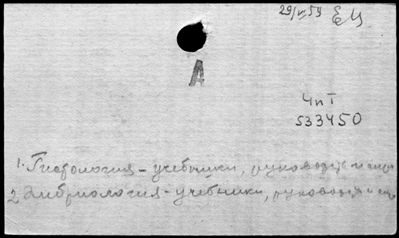 29/VI 59 ЕЦ
А
ЧпТ
533450
1. Гистология - учебники, руковод. и
2. Эмбриология - учебники, руковод. и